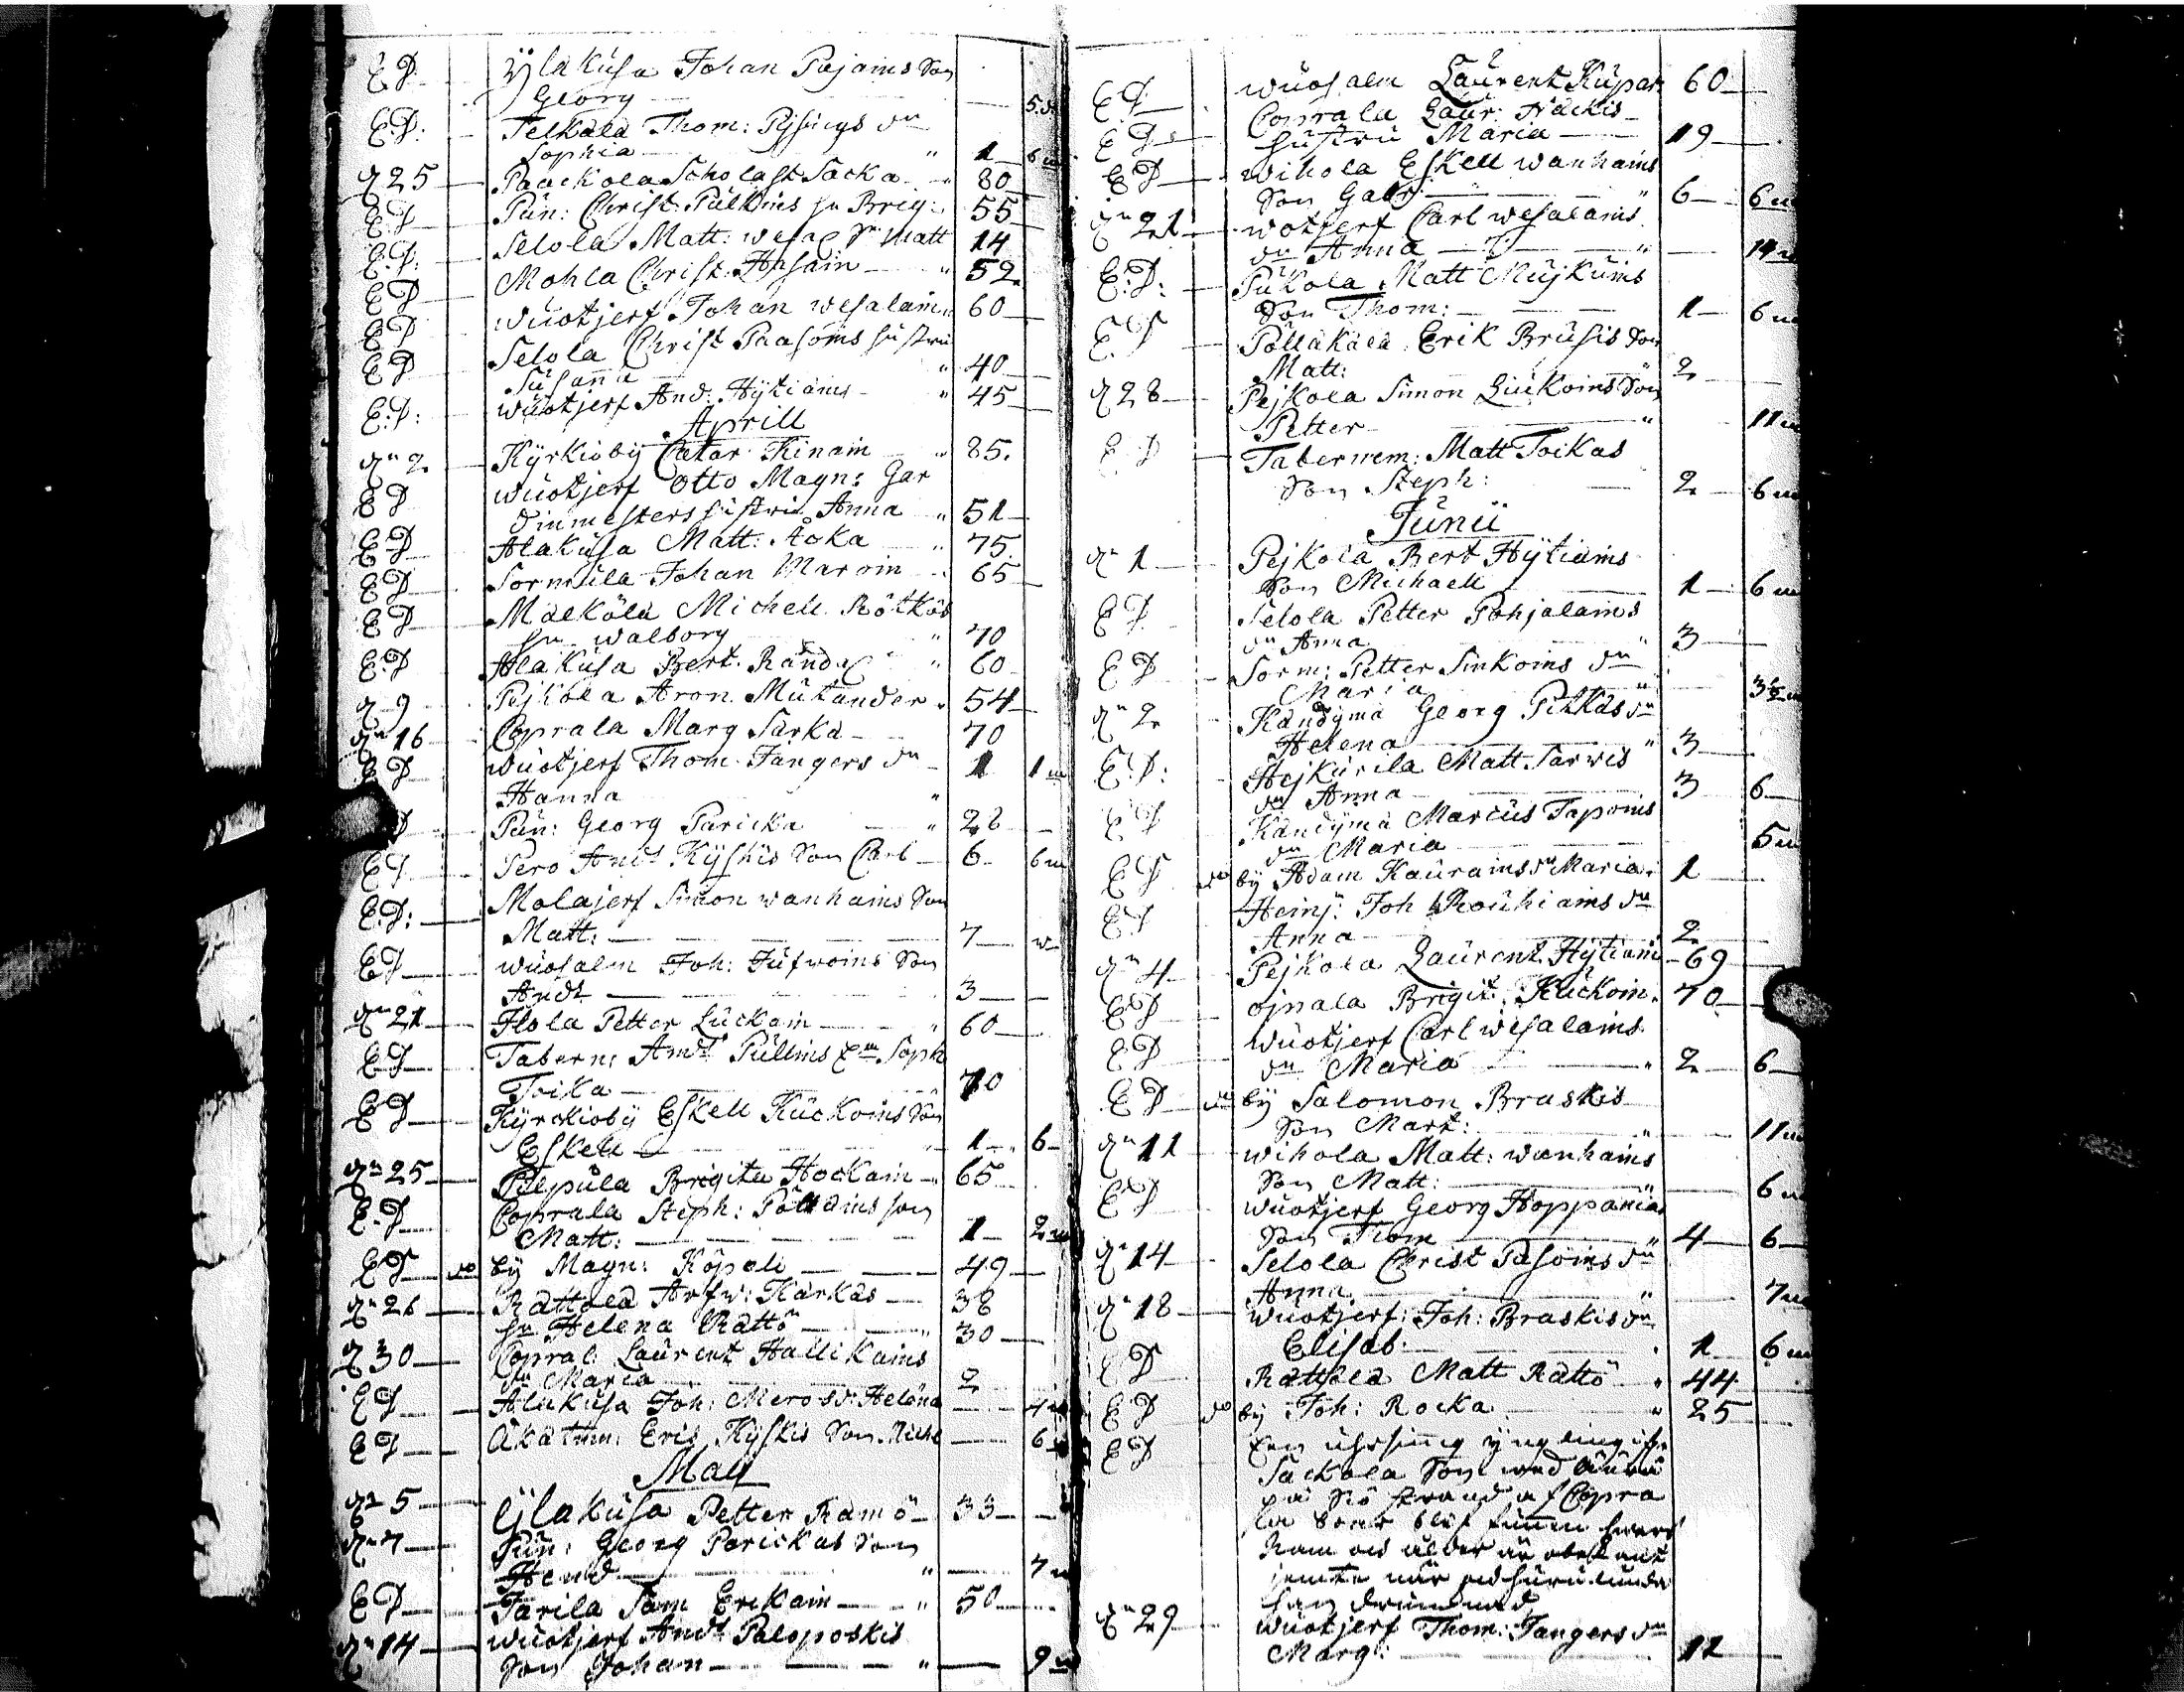 E D Ylakusa Johan Pajains Son
Georg — 5 d
E D: Telkälä Thom: Pysüys dr
Sophia — " 1 — 6 m
d 25 — Paackola Scholast Säcka — " 80
E D — Pün: Christ: Pülkins hu Brig: 55
E: D: Selola Matt: wesal Sn Matt 14
E D — Mohla Christ. Ihasain — " 52
E D — wuotjerf Johan wesalain " 60
E D — Selola Christ Paasoins hustru
Susanna — " 40
E: D: wuotjerf And: Hytiäins — " 45
Aprill
dn 2 — Kyrkioby Catar Kinain — " 85.
E D wuotjerf Otto Magn: Gar
dinmesters hustru Anna " 51
E D — Alakusa Matt: Äoka — " 75
E D — Sormula Johan Maroin — 65
E D — Mälkölä Michell Rötkös
hu walborg — " 70
E: D Alakusa Bert. Randal — " 60
d 9 — Pejkola Aron Mutander " 54
dn 16 Coprala Marg Särkä — 70
E D wuotjerf Thom. Tangers dr — 1 1 m
Hanna — "
D Pün: Georg Paricka — " 28
E D Pero Andr Kyshis Son Carl — 6 — 6 m
E. D: — Molajerf Simon wanhains Son
Matt: — 7 — w
E D — wuosalm Joh: Jufwoins Son
Andr — 3 —
dn 21 — Ilola Petter Luckain — " 60 —
E D Tabern: Andr Pullins Em Soph
Toika — 70
E D — Kyrckioby Eskell Kuckoins Son
Eskell — 1 — 6 —
dn 25 — Pulpula Brigita Hockain — " 65
E. D Coprala Steph: Pöllains son
Matt: — 1 — 2 m
E D — do by Magn: Köpoli — 49
dn 26 — Rättöla Arfw: Kärkäs — 38
hu Helena Rättö — " 30
d 30 — Copral: Laurent Hallikains
dr Maria — 2
E D — Alakusa Joh: Meros dr Helena — 4 m
E D — Äkätmm: Eris Kyskis Son Michl — 6
Maij
dn 5 — Ylakusa Petter Rämö — 33
dn 7 — Pun: Georg Parickas Son
Hend — " — 7 m
E D — Tarila Sam Erikain — " 50
dn 14 — wuotjerf Andr Paloposkis
Son Johan — " — 9 m
E D — wuosalm Laurent Kupar 60
E D. Coprala Laur: Näckis
hustru Maria — 19
E D — wihola Eskell wanhains
Son Gabr: — " 6 — 6 m
dn 21 — wotjerf Carl wesalains
dr Anna — " — 14 d
E: D: Pukola Matt Mujkuins
Son Thom: — 1 — 6 m
E. D Pöllakälä Erik Brusis Son
Matt: — 2
d 28 — Pejkola Simon Liukoins Son
Petter — " 11 m
E D — Tabernem: Matt Toikas
Son Steph: — 2 — 6 m
Junii
dn 1 — Pejkola Bert Hytiäins
Son Michaell — 1 — 6 m
E D Selola Petter Pohjalains
dr Anna — " 3 —
E D — Sorm: Petter Sinkoins dr
Maria — " 3½ m
dn 2 Kandyma Georg Pitkäs dr
Helena — " 3 —
E: D: Hejkurila Matt. Sarwis
dr Anna — 3 6 —
E D Kandyma Marcus Taponis
dr Maria — 5 m
E D do by Adam Kaurains dr Maria. 1
E D Heinj: Joh Rouhiains dr
Anna — 2
dn 4 Pejkola Laurent Hytiäin — 69
E D ojnala Brigit: Kuckoin. 70
E D wuotjerf Carl wesalains
dr Maria — " 2 — 6 —
E D — do by Salomon Braskis
Son Mart: — " 11 m
dn 11 — wihola Matt: wanhains
Son Matt: — " 6 m
E D wuotjerf Georg Hoppania
Son Thom — " 4 — 6 —
dn 14 — Selola Christ Pasoins dr
Anna — " 7 m
dn 18 — wuotjerf: Joh: Braskis dr
Elisab: — 1 — 6 m
E D Rättölä Matt Rättö — " 44
E D do by Joh: Rocka — " 25
E D En yngling
Säckola Son
på Siö strand af Copra
la blef funnen
ålder är obekant
jemte när
han
dn 29 wuotjerf Thom: Tangers dr
Marg: — 12